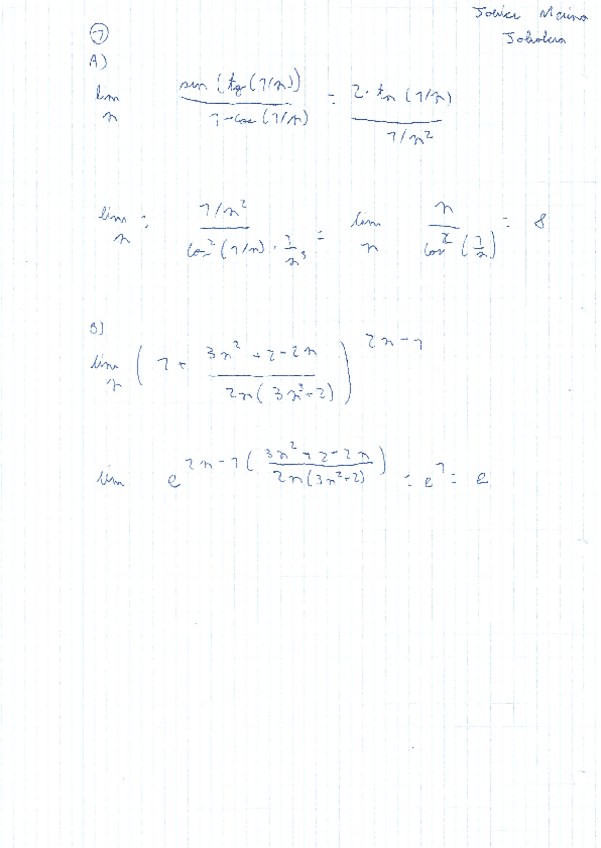 1
A)
lim n sin(tg(1/n)) / 1-cos(1/n) = 2·tn(1/n) / 1/n²
lim n = 1/n² / cos²(1/n)·1/n³ = lim n n / cos²(1/n) = 8
B)
lim n (1 + 3n²+2-2n / 2n(3n²+2)) 2n-1
lim e 2n-1(3n²+2-2n / 2n(3n²+2)) = e¹ = e